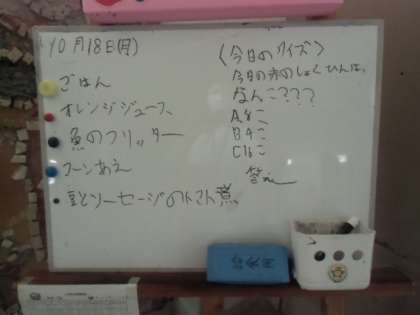 10月18日(月)
ごはん
オレンジジュース
魚のフリッター
コーンあえ
豆とソーセージのトマト煮
〈今日のクイズ〉
今日の赤のしょくひんは、
なんこ???
A8こ
B4こ
C16こ
答え